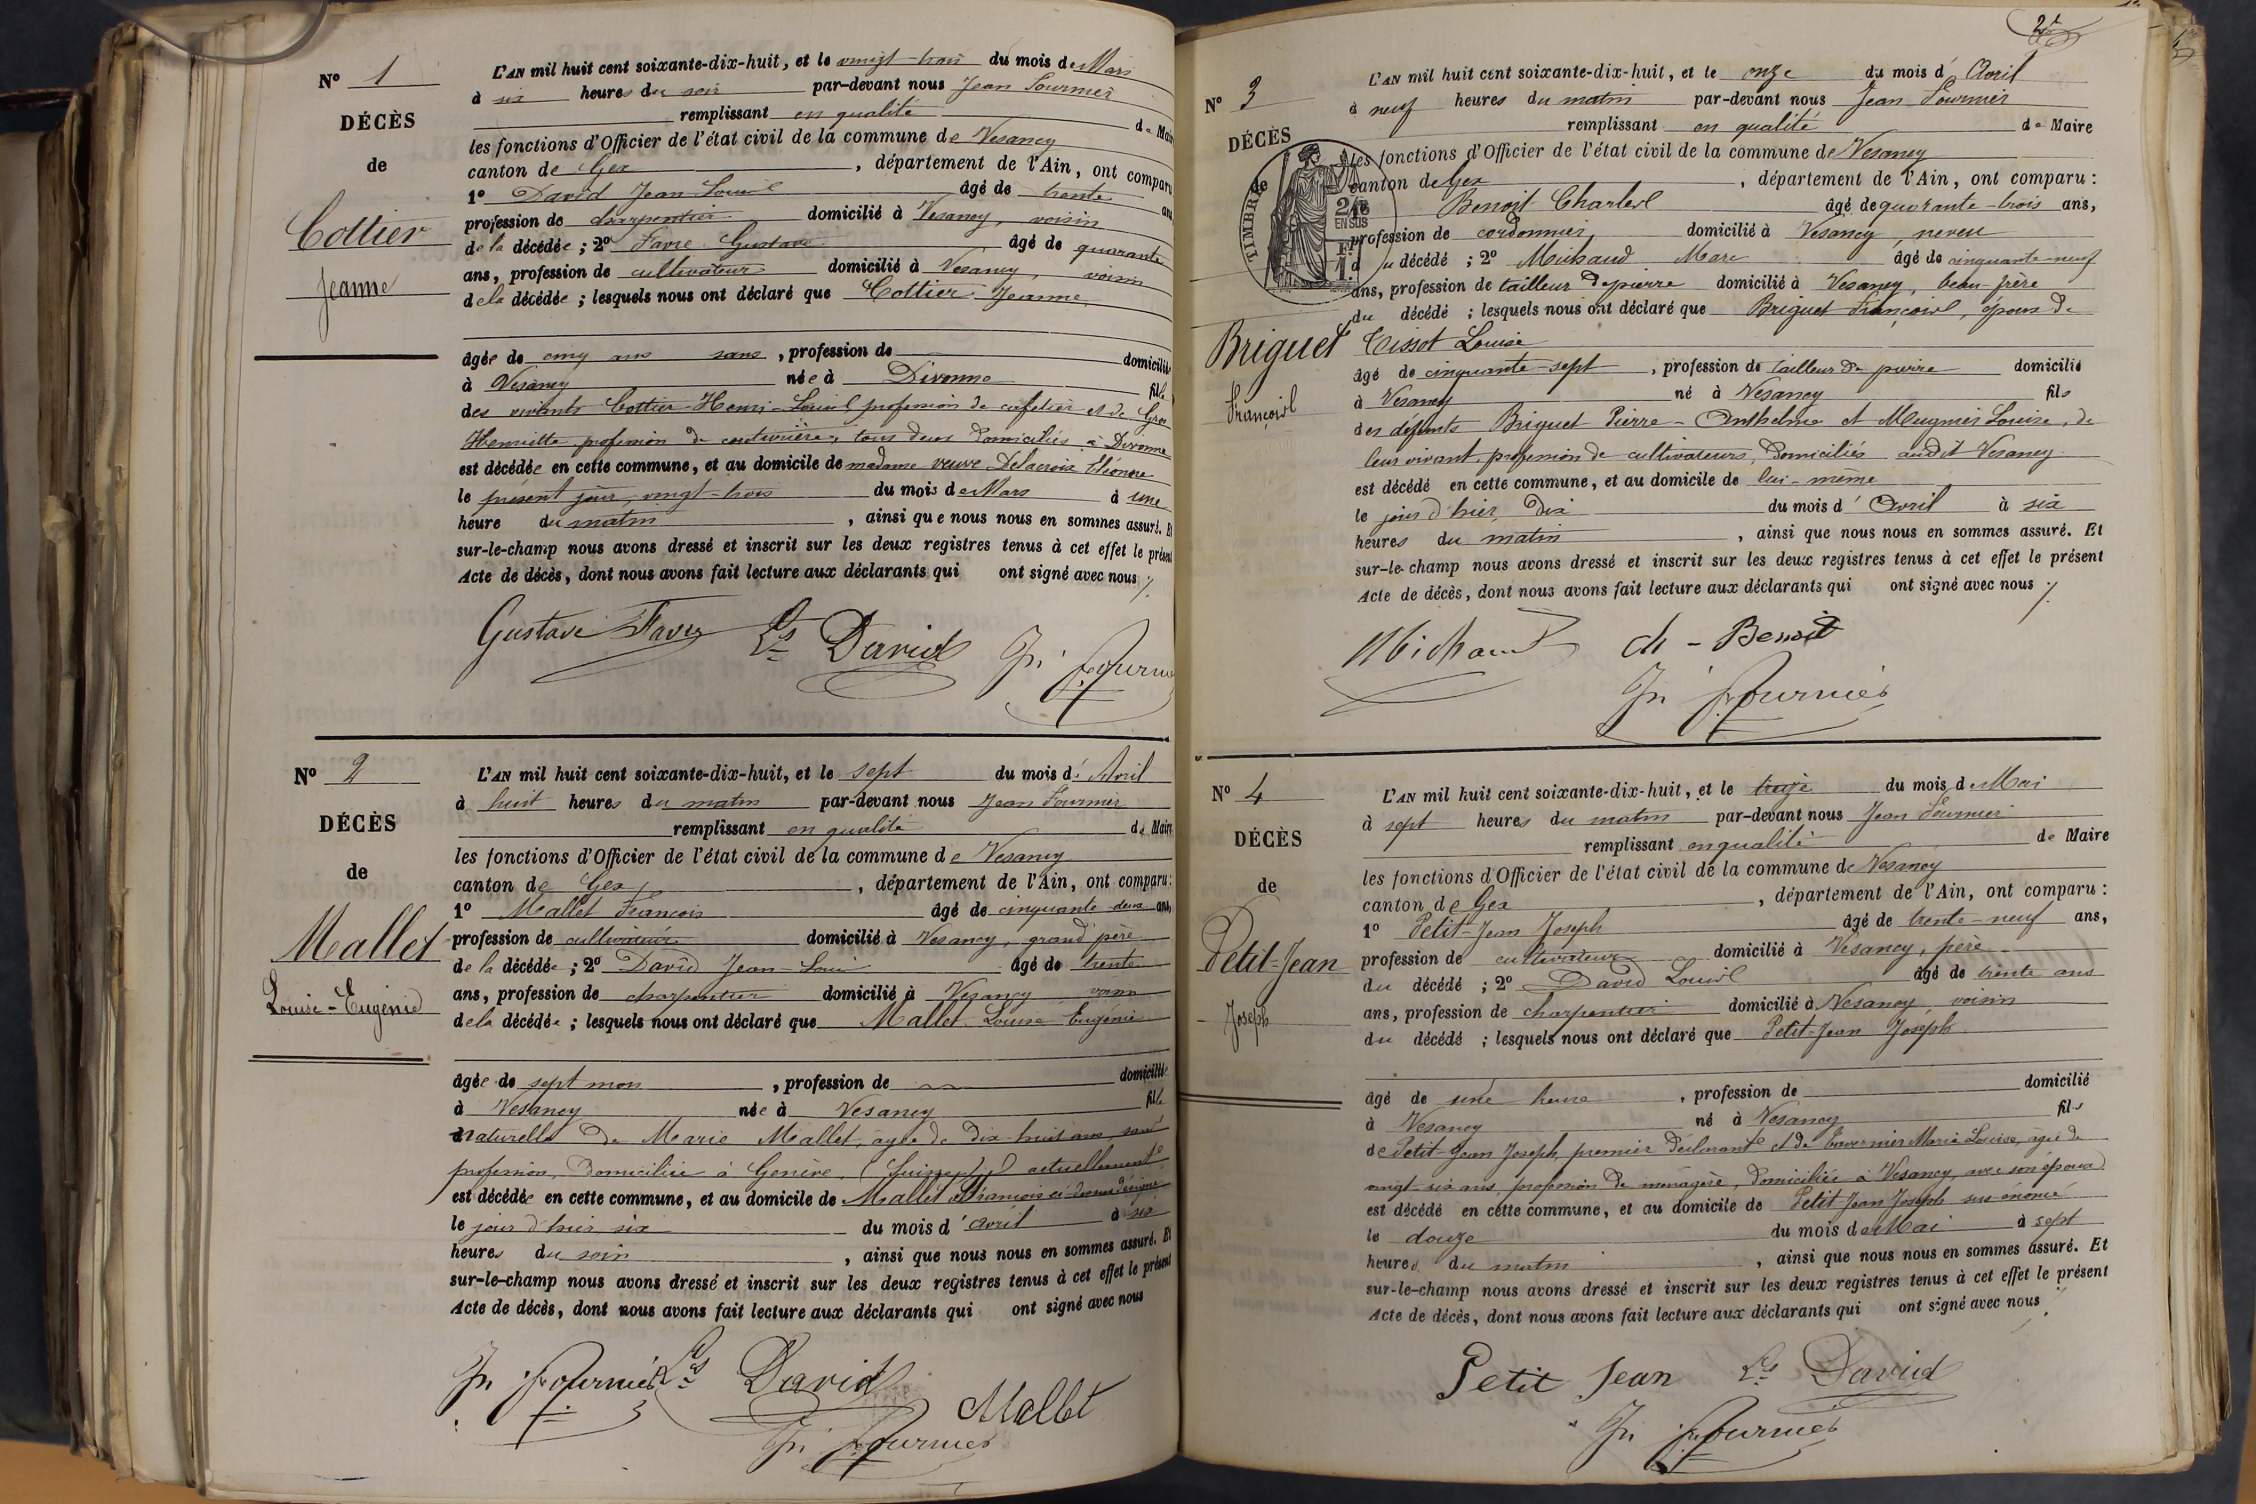 Nº 1
DÉCÈS
de
Cottier
Jeanne
L'AN mil huit cent soixante-dix-huit, et le vingt-trois du mois de Mars
à six heures du soir par-devant nous Jean Fournier
remplissant en qualité de Maire
les fonctions d'Officier de l'état civil de la commune de Vesancy
canton de Gex, département de l'Ain, ont comparu
1º David Jean Louis âgé de trente ans
profession de charpentier domicilié à Vesancy, voisin
de la décédée ; 2º Favre Gustave âgé de quarante
ans, profession de cultivateur domicilié à Vesancy, voisin
de la décédée ; lesquels nous ont déclaré que Cottier Jeanne
âgée de cinq ans sans, profession de domiciliée
à Vesancy née à Divonne fille
des vivants Cottier Henri-Louis, profession de cafetier et de Gros
Henriette profession de couturière, tous deux domiciliés à Divonne
est décédée en cette commune, et au domicile de madame veuve Delacroix Eléonore
le présent jour, vingt-trois du mois de Mars à une
heure du matin, ainsi que nous nous en sommes assuré. Et
sur-le-champ nous avons dressé et inscrit sur les deux registres tenus à cet effet le présent
Acte de décès, dont nous avons fait lecture aux déclarants qui ont signé avec nous
Gustave Favre Ls David Jn Fournier
Nº 2
DÉCÈS
de
Mallet
Louise-Eugénie
L'AN mil huit cent soixante-dix-huit, et le sept du mois d'Avril
à huit heures du matin par-devant nous Jean Fournier
remplissant en qualité de Maire
les fonctions d'Officier de l'état civil de la commune de Vesancy
canton de Gex, département de l'Ain, ont comparu :
1º Mallet François âgé de cinquante deux ans,
profession de cultivateur domicilié à Vesancy, grand père
de la décédée ; 2º David Jean-Louis âgé de trente
ans, profession de charpentier domicilié à Vesancy voisin
de la décédée ; lesquels nous ont déclaré que Mallet Louise Eugénie
âgée de sept mois, profession de domiciliée
à Vesancy née à Vesancy fille
naturelle de Marie Mallet, âgée de dix-huit ans, sans
profession, domiciliée à Genève, (Suisse) actuellement
est décédée en cette commune, et au domicile de Mallet François ci-dessus désigné
le jour d'hier six du mois d'avril à six
heures du soir, ainsi que nous nous en sommes assuré. Et
sur-le-champ nous avons dressé et inscrit sur les deux registres tenus à cet effet le présent
Acte de décès, dont nous avons fait lecture aux déclarants qui ont signé avec nous
Jn Fournier Ls David Mallet
Jn Fournier
2e
Nº 3
DÉCÈS
de
TIMBRE
2/10
EN SUS
Briguet
François
L'AN mil huit cent soixante-dix-huit, et le onze du mois d'Avril
à neuf heures du matin par-devant nous Jean Fournier
remplissant en qualité de Maire
les fonctions d'Officier de l'état civil de la commune de Vesancy
canton de Gex, département de l'Ain, ont comparu :
1º Benoit Charles âgé de quarante-trois ans,
profession de cordonnier domicilié à Vesancy, neveu
du décédé ; 2º Michaud Marc âgé de cinquante-neuf
ans, profession de tailleur de pierre domicilié à Vesancy, beau-frère
du décédé ; lesquels nous ont déclaré que Briguet François, époux de
Tissot Louise
âgé de cinquante-sept, profession de tailleur de pierre domicilié
à Vesancy né à Vesancy fils
des défunts Briguet Pierre-Anthelme et Meugnier Louise, de
leur vivant, profession de cultivateurs, domiciliés audit Vesancy
est décédé en cette commune, et au domicile de lui-même
le jour d'hier, dix du mois d'Avril à six
heures du matin, ainsi que nous nous en sommes assuré. Et
sur-le-champ nous avons dressé et inscrit sur les deux registres tenus à cet effet le présent
Acte de décès, dont nous avons fait lecture aux déclarants qui ont signé avec nous
Michaud ch-Benoit
Jn Fournier
Nº 4
DÉCÈS
de
Petit-Jean
Joseph
L'AN mil huit cent soixante-dix-huit, et le treize du mois de Mai
à sept heures du matin par-devant nous Jean Fournier
remplissant en qualité de Maire
les fonctions d'Officier de l'état civil de la commune de Vesancy
canton de Gex, département de l'Ain, ont comparu :
1º Petit-Jean Joseph âgé de trente-neuf ans,
profession de cultivateur domicilié à Vesancy, père
du décédé ; 2º David Louis âgé de trente ans
ans, profession de charpentier domicilié à Vesancy voisin
du décédé ; lesquels nous ont déclaré que Petit-Jean Joseph
âgé de une heure, profession de domicilié
à Vesancy né à Vesancy fils
de Petit-Jean Joseph, premier déclarant et de Marie Louise, âgée de
vingt-six ans, profession de ménagère, domiciliée à Vesancy, avec son époux
est décédé en cette commune, et au domicile de Petit Jean Joseph sus énoncé
le douze du mois de Mai à sept
heures du matin, ainsi que nous nous en sommes assuré. Et
sur-le-champ nous avons dressé et inscrit sur les deux registres tenus à cet effet le présent
Acte de décès, dont nous avons fait lecture aux déclarants qui ont signé avec nous
Petit Jean Ls David
Jn Fournier